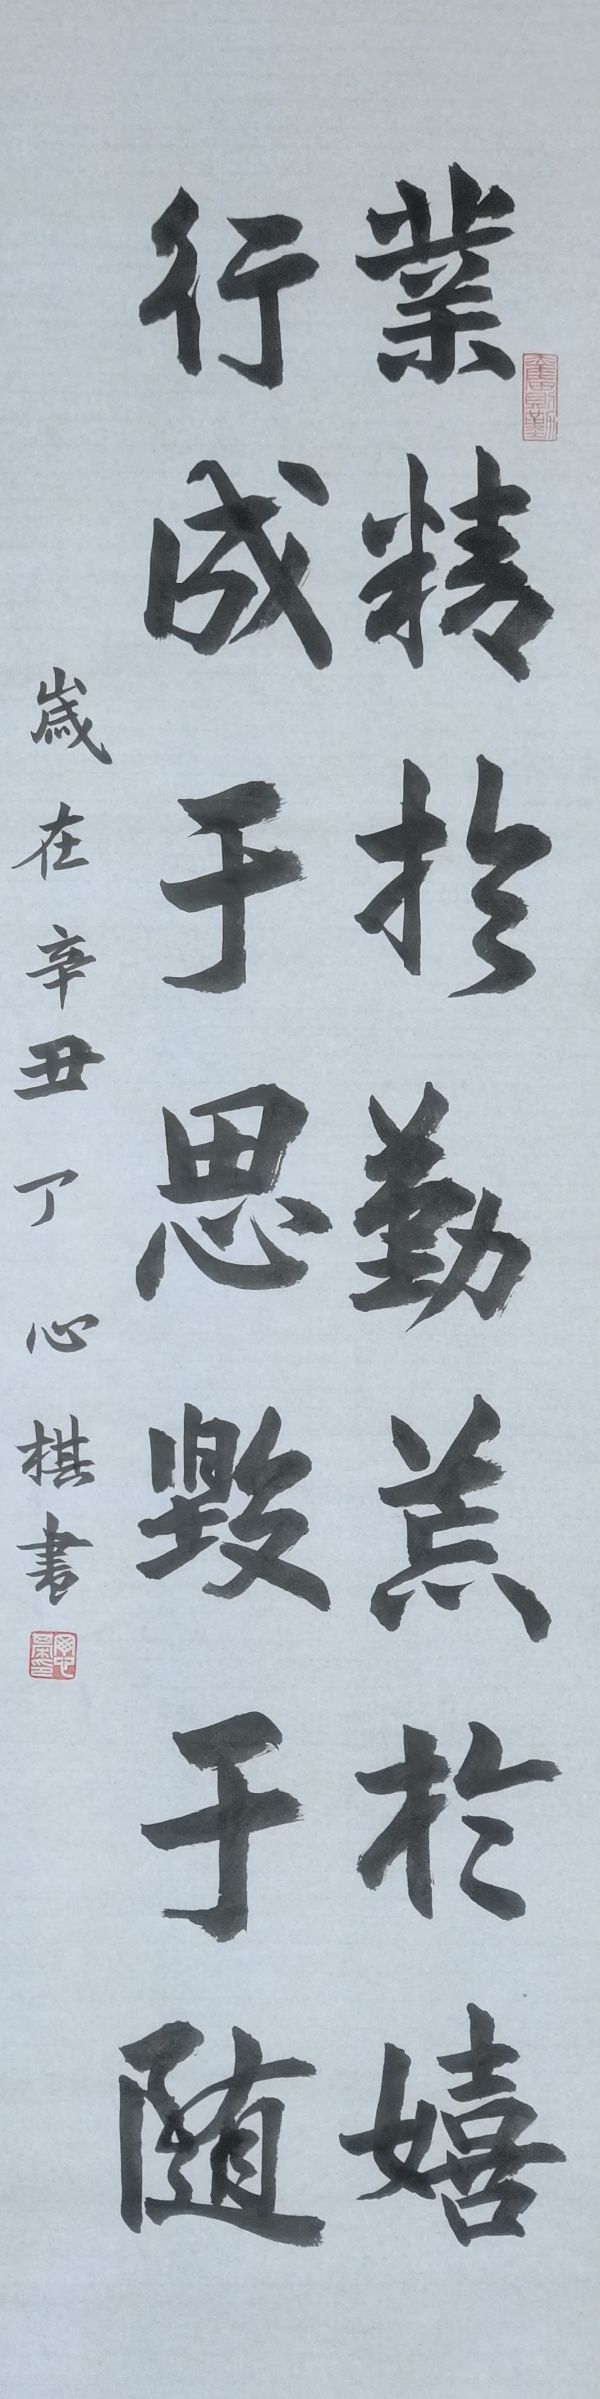 業精於勤荒於嬉
行成于思毀于随
歲在辛丑丁心棋書